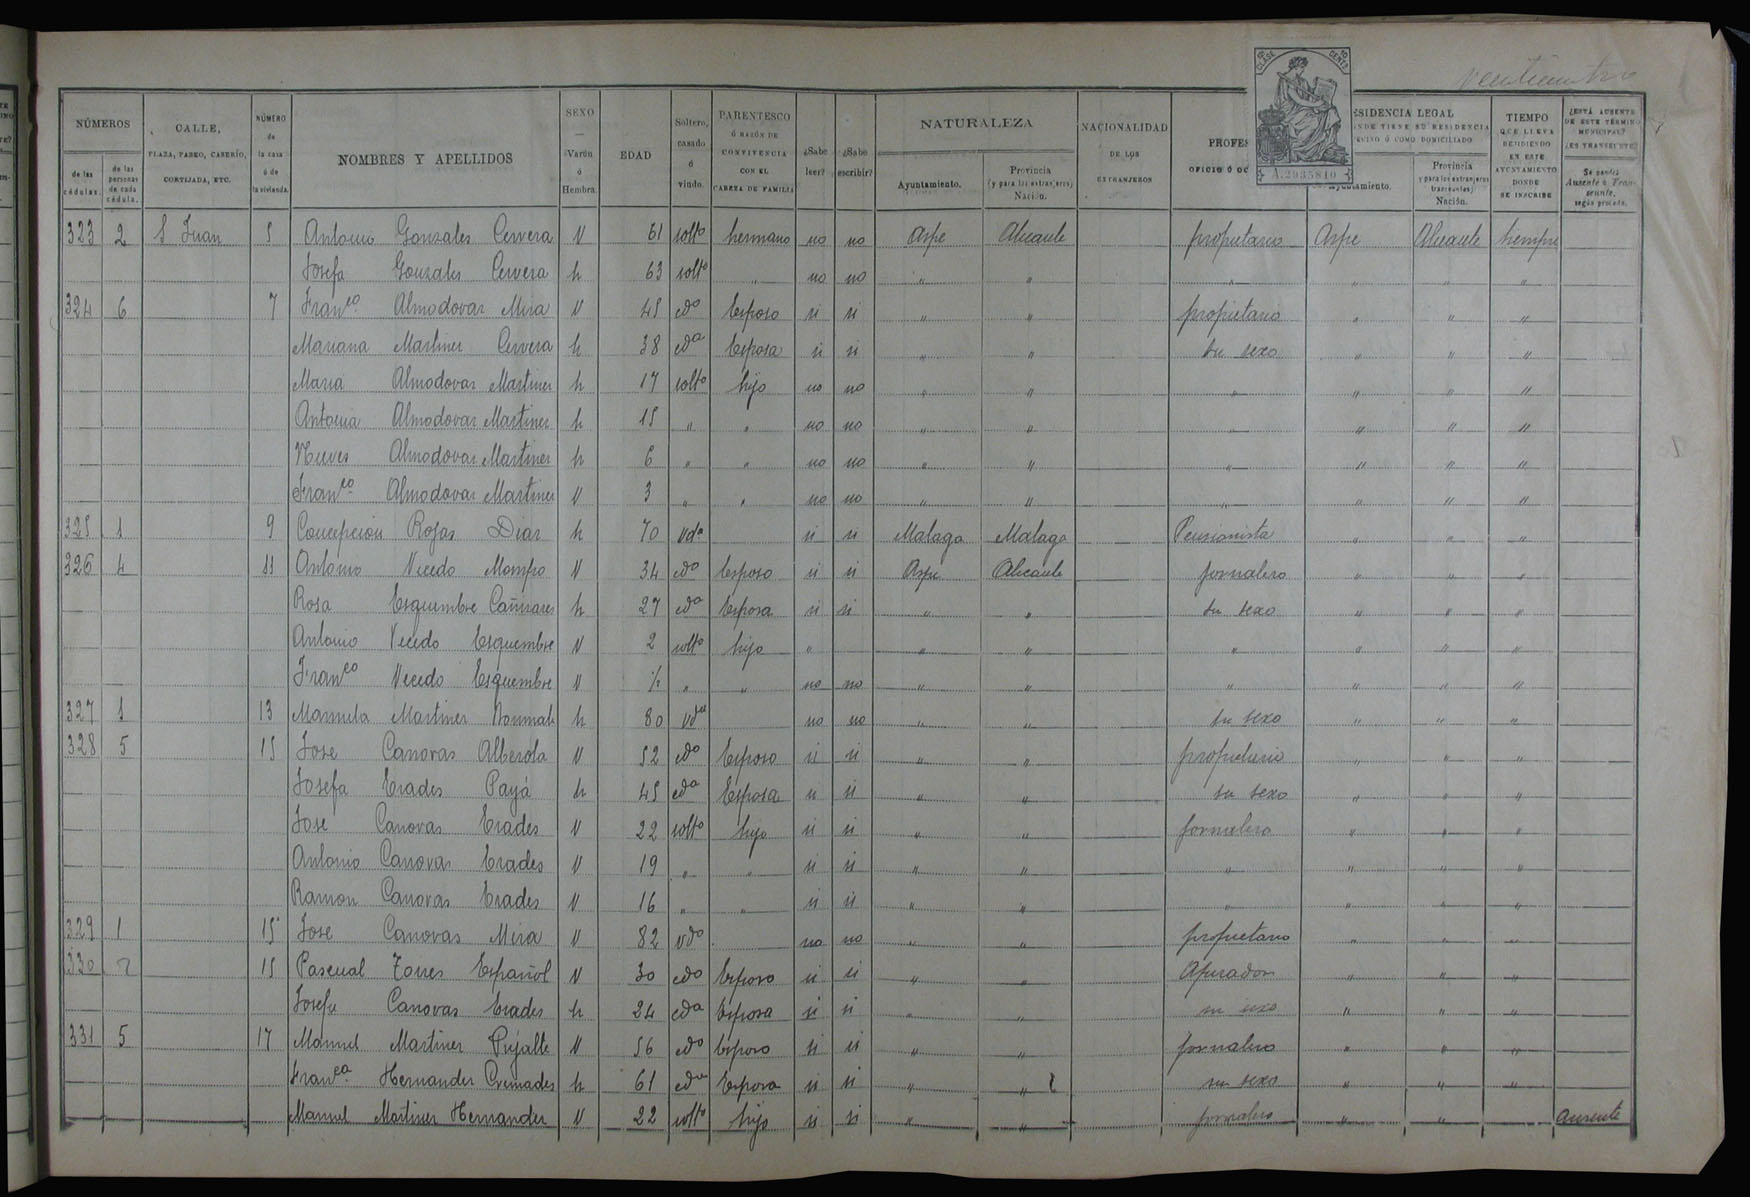 Veinticuatro
8ª CLASE 10 CENTS
A.2935810
NÚMEROS
de las cédulas.
de las personas de cada cédula.
CALLE, PLAZA, PASEO, CASERÍO, CORTIJADA, ETC.
NÚMERO de la casa ó de la vivienda.
NOMBRES Y APELLIDOS
SEXO — Varón ó Hembra.
EDAD
Soltero, casado ó viudo.
PARENTESCO Ó RAZÓN DE CONVIVENCIA CON EL CABEZA DE FAMILIA
¿Sabe leer?
¿Sabe escribir?
NATURALEZA
Ayuntamiento.
Provincia (y para los extranjeros) Nación.
NACIONALIDAD DE LOS EXTRANJEROS
PROFES
OFICIO Ó OC
ESIDENCIA LEGAL
NDE TIENE SU RESIDENCIA
ECINO Ó COMO DOMICILIADO
Ayuntamiento.
Provincia (y para los extranjeros transeuntes) Nación.
TIEMPO QUE LLEVA RESIDIENDO EN ESTE AYUNTAMIENTO DONDE SE INSCRIBE
¿ESTÁ AUSENTE DE ESTE TÉRMINO MUNICIPAL? ¿ES TRANSEUNTE?
Se pondrá Ausente ó Transeunte, según proceda.
323 2 S Juan 5 Antonio Gonzales Cervera V 61 soltº hermano no no Aspe Alicante propietario Aspe Alicante siempre
Josefa Gonzales Cervera h 63 soltº " no no " " " " " "
324 6 7 Franco. Almodovar Mira V 45 cdo Esposo si si " " propietario " " "
Mariana Martinez Cervera h 38 cda Esposa si si " " su sexo " " "
Maria Almodovar Martinez h 17 soltº hijo no no " " " " " "
Antonia Almodovar Martinez h 15 " " no no " " " " " "
Nieves Almodovar Martinez h 6 " " no no " " " " " "
Franco. Almodovar Martinez V 3 " " no no " " " " " "
325 1 9 Concepcion Rojas Diaz h 70 vda si si Malaga Malaga Pensionista " " "
326 4 11 Antonio Vicedo Mompo V 34 cdo Esposo si si Aspe Alicante jornalero " " "
Rosa Esquembre Cañizares h 27 cda Esposa si si " " su sexo " " "
Antonio Vicedo Esquembre V 2 soltº hijo " " " " " " "
Franco Vicedo Esquembre V ½ " " no no " " " " " "
327 1 13 Manuela Martinez h 80 vda no no " " su sexo " " "
328 5 15 Jose Canovas Alberola V 52 cdo Esposo si si " " propietario " " "
Josefa Erades Payá h 45 cda Esposa si si " " su sexo " " "
Jose Canovas Erades V 22 soltº hijo si si " " jornalero " " "
Antonio Canovas Erades V 19 " " si si " " " " " "
Ramon Canovas Erades V 16 " " si si " " " " " "
329 1 15 Jose Canovas Mira V 82 vdo no no " " propietario " " "
330 2 15 Pascual Torres Español V 30 cdo Esposo si si " " Aperador " " "
Josefa Canovas Erades h 24 cda Esposa si si " " su sexo " " "
331 5 17 Manuel Martinez Pujalte V 56 cdo Esposo si si " " jornalero " " "
Franca. Hernandez Cremades h 61 cda Esposa si si " " su sexo " " "
Manuel Martinez Hernandez V 22 soltº hijo si si " " jornalero " " ausente